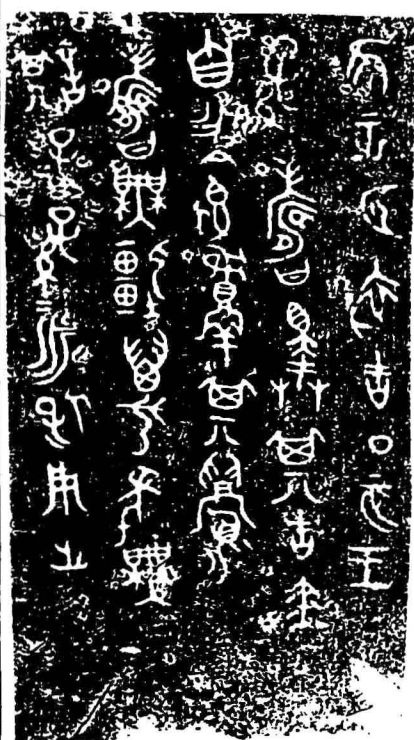 隹正月初吉丁亥王
孫壽擇其吉金
自乍飤甗其眉
壽無疆萬年無
諆子子孫孫永保用之